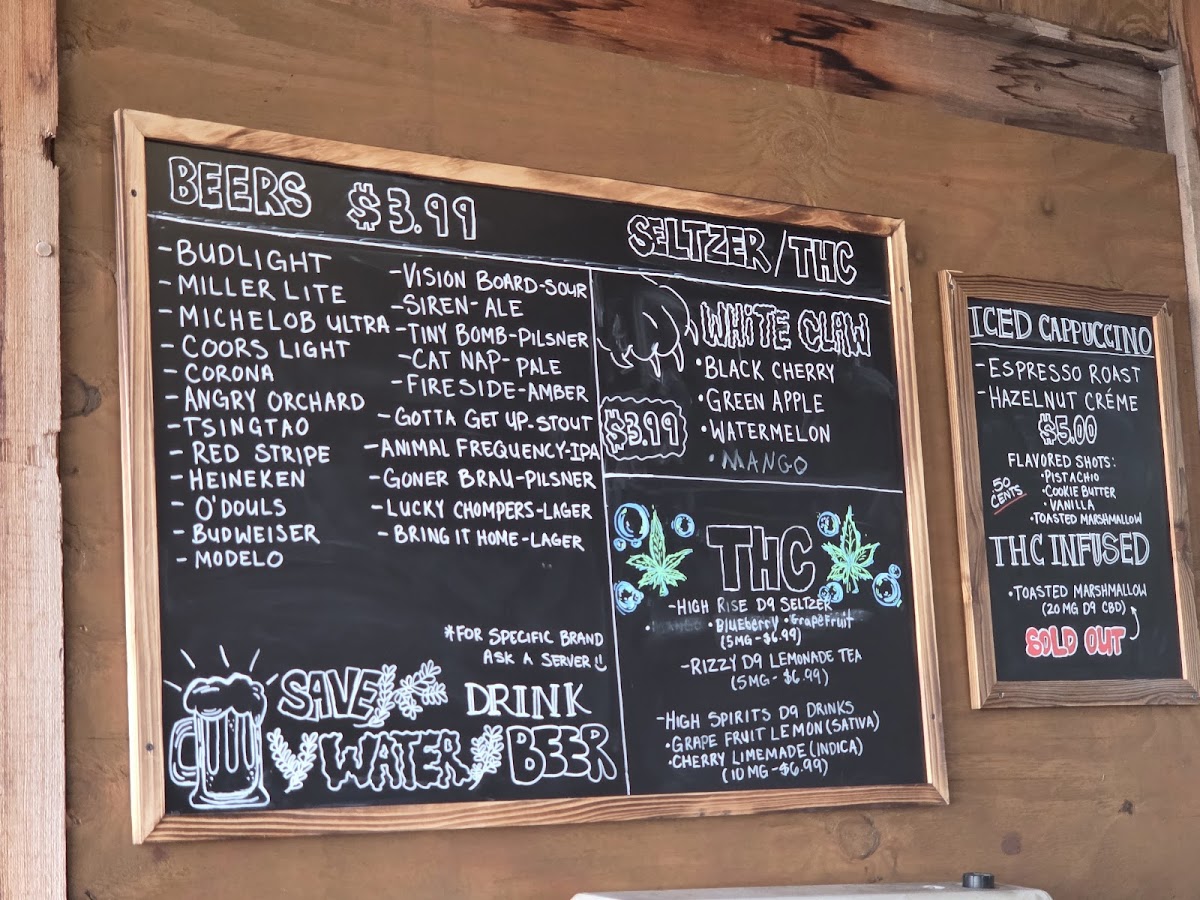 BEERS $3.99
-BUDLIGHT
-MILLER LITE
-MICHELOB ULTRA
-COORS LIGHT
-CORONA
-ANGRY ORCHARD
-TSINGTAO
-RED STRIPE
-HEINEKEN
-O'DOULS
-BUDWEISER
-MODELO
-VISION BOARD-SOUR
-SIREN-ALE
-TINY BOMB-PILSNER
-CAT NAP-PALE
-FIRESIDE-AMBER
-GOTTA GET UP-STOUT
-ANIMAL FREQUENCY-IPA
-GONER BRAU-PILSNER
-LUCKY CHOMPERS-LAGER
-BRING IT HOME-LAGER
*FOR SPECIFIC BRAND
ASK A SERVER
SAVE
WATER
DRINK
BEER
SELTZER/THC
WHITE CLAW
•BLACK CHERRY
•GREEN APPLE
•WATERMELON
•MANGO
$3.99
THC
-HIGH RISE D9 SELTZER
•MANGO •Blueberry •Grapefruit
(5MG-$6.99)
-RIZZY D9 LEMONADE TEA
(5MG-$6.99)
-HIGH SPIRITS D9 DRINKS
•GRAPE FRUIT LEMON (SATIVA)
•CHERRY LIMEMADE (INDICA)
(10MG-$6.99)
ICED CAPPUCCINO
-ESPRESSO ROAST
-HAZELNUT CRÉME
$5.00
FLAVORED SHOTS:
50 CENTS
•PISTACHIO
•COOKIE BUTTER
•VANILLA
•TOASTED MARSHMALLOW
THC INFUSED
•TOASTED MARSHMALLOW
(20MG D9 CBD)
SOLD OUT